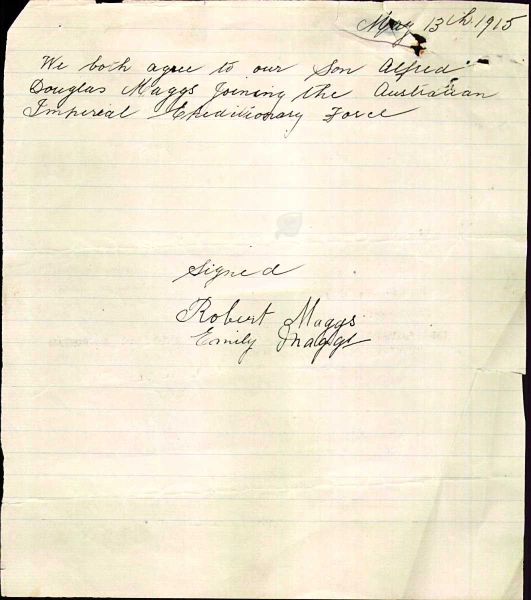 May 13th 1915
We both agree to our Son Alfred
Douglas Maggs Joining the Australian
Imperial Expeditionary Force
Signed
Robert Maggs
Emily Maggs